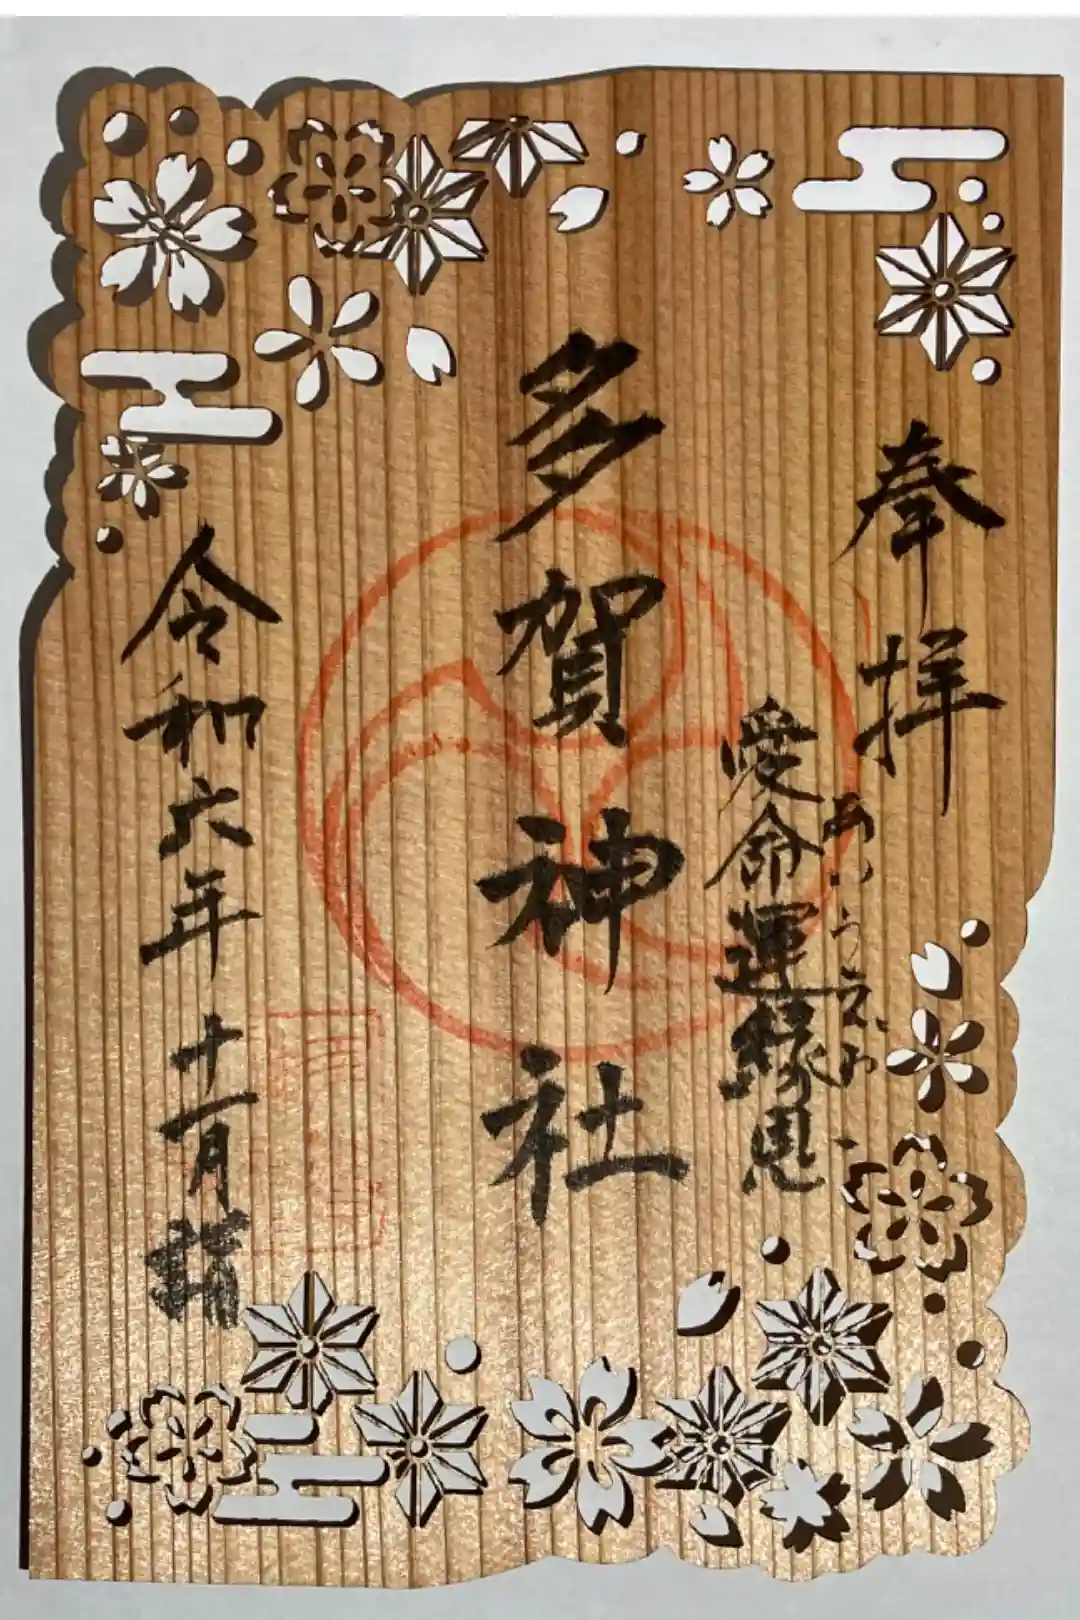 奉拝
あいうえお
愛命運縁恩
多賀神社
令和六年十一月詣